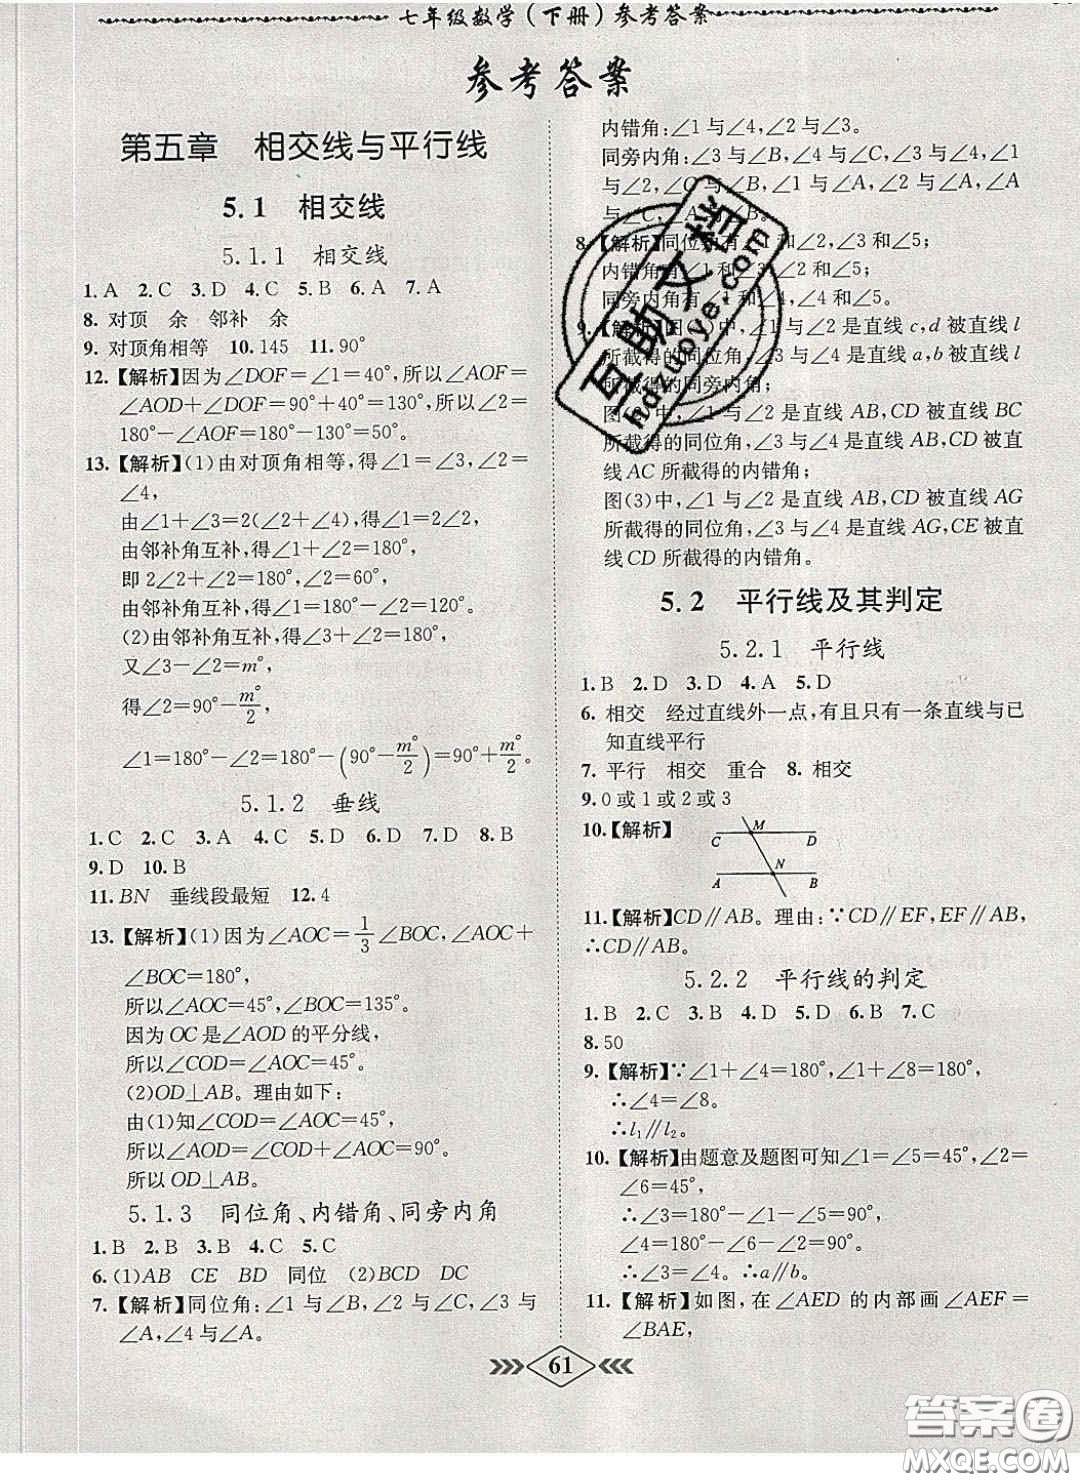 七年级数学(下册)参考答案
参考答案
第五章 相交线与平行线
5.1 相交线
5.1.1 相交线
1.A 2.C 3.D 4.C 5.B 6.A 7.A
8. 对顶 余 邻补 余
9. 对顶角相等 10.145 11.90°
12.【解析】因为∠DOF=∠1=40°,所以∠AOF=
∠AOD+∠DOF=90°+40°=130°,所以∠2=
180°-∠AOF=180°-130°=50°。
13.【解析】(1)由对顶角相等,得∠1=∠3,∠2=
∠4,
由∠1+∠3=2(∠2+∠4),得∠1=2∠2,
由邻补角互补,得∠1+∠2=180°,
即 2∠2+∠2=180°,∠2=60°,
由邻补角互补,得∠1=180°-∠2=120°。
(2)由邻补角互补,得∠3+∠2=180°,
又∠3-∠2=m°,
得∠2=90°-m°/2,
∠1=180°-∠2=180°-(90°-m°/2)=90°+m°/2。
5.1.2 垂线
1.C 2.C 3.A 4.C 5.D 6.D 7.D 8.B
9.D 10.B
11.BN 垂线段最短 12.4
13.【解析】(1)因为∠AOC=1/3∠BOC,∠AOC+
∠BOC=180°,
所以∠AOC=45°,∠BOC=135°。
因为 OC是∠AOD 的平分线,
所以∠COD=∠AOC=45°。
(2)OD⊥AB。理由如下:
由(1)知∠COD=∠AOC=45°,
所以∠AOD=∠COD+∠AOC=90°,
所以 OD⊥AB。
5.1.3 同位角、内错角、同旁内角
1.B 2.B 3.B 4.C 5.C
6.(1)AB CE BD 同位 (2)BCD DC
7.【解析】同位角:∠1 与∠B,∠2 与∠C,∠3 与
∠A,∠4 与∠B。
内错角:∠1与∠4,∠2与∠3。
同旁内角:∠3 与∠B,∠4 与∠C,∠3与∠4,∠1
与∠2,∠C 与∠B,∠1 与∠A,∠2 与∠A,∠A
与∠C,∠A 与∠B。
8.【解析】同位角有∠1和∠2,∠3和∠5;
内错角有∠ 和∠2,∠4和∠5;
同旁内角有∠ 和∠4,∠ 和∠5。
9.【解析】图(1)中,∠1与∠2是直线c,d 被直线l
所截得的同位角,∠3与∠4是直线a,b被直线l
所截得的同旁内角;
图(2)中,∠1 与∠2 是直线 AB,CD 被直线 BC
所截得的同位角,∠3与∠4是直线AB,CD被直
线 AC 所截得的内错角;
图(3)中,∠1 与∠2 是直线 AB,CD 被直线 AG
所截得的同位角,∠3与∠4是直线AG,CE被直
线 CD 所截得的内错角。
5.2 平行线及其判定
5.2.1 平行线
1.B 2.D 3.D 4.A 5.D
6. 相交 经过直线外一点,有且只有一条直线与已
知直线平行
7. 平行 相交 重合 8. 相交
9.0或1或2或3
10.【解析】
C M D
A N B
11.【解析】CD∥AB。理由:∵CD∥EF,EF∥AB,
∴CD∥AB。
5.2.2 平行线的判定
1.B 2.C 3.B 4.D 5.D 6.B 7.C
8.50
9.【解析】∵∠1+∠4=180°,∠1+∠8=180°,
∴∠4=∠8。
∴l₁∥l₂。
10.【解析】由题意及题图可知∠1=∠5=45°,∠2=
∠6=45°,
∴∠3=180°-∠1-∠5=90°,
∠4=180°-∠2-∠6=90°。
∴∠3=∠4。∴a∥b。
11.【解析】如图,在∠AED 的内部画∠AEF=
∠BAE,
61
互助文料
hdzuoye.com
答案圈
MXQE.COM